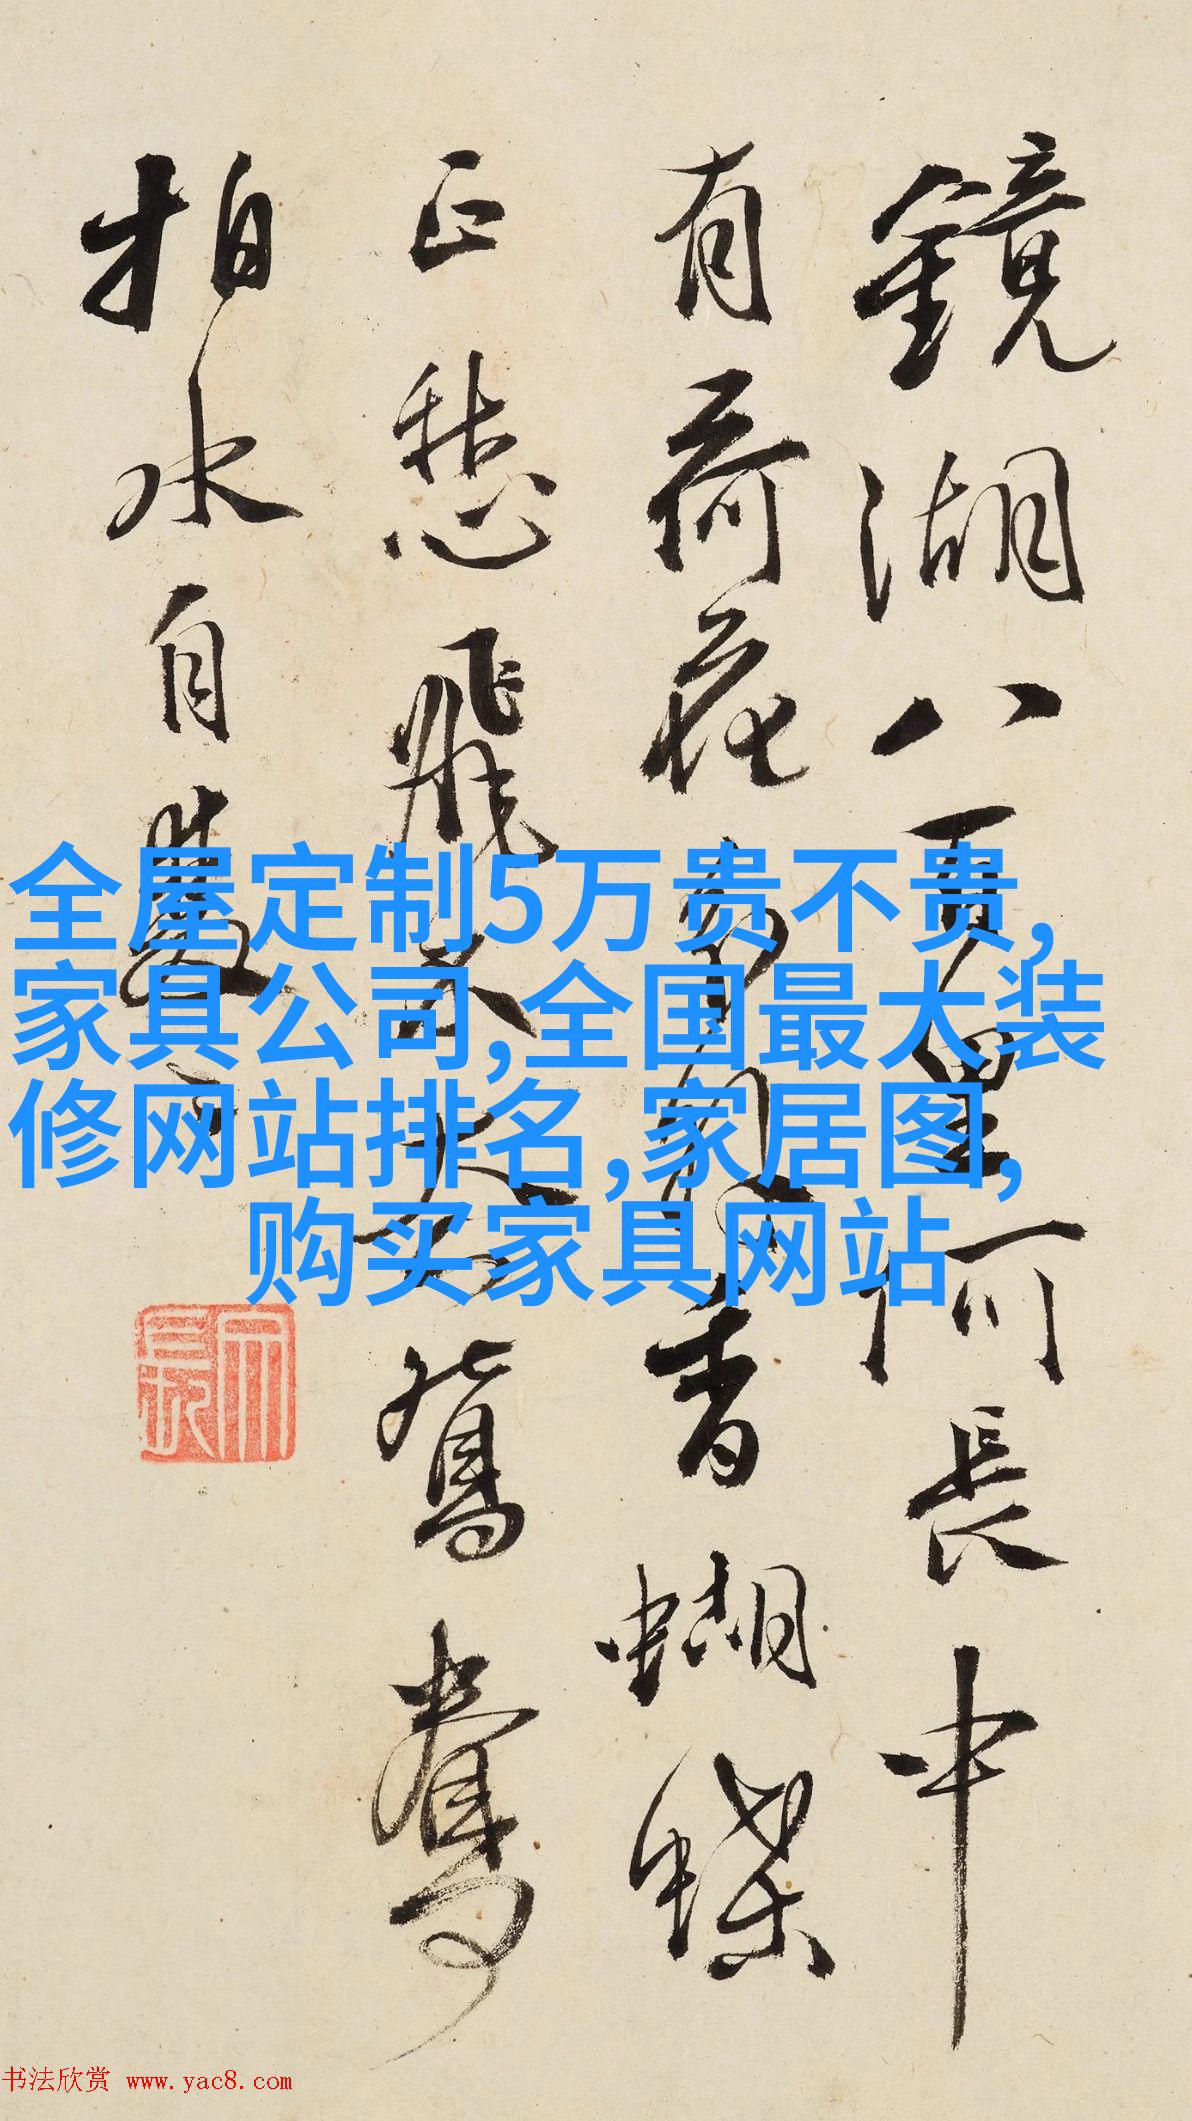 鏡湖八百里何長中
有荷花分外香蝴蝶
正愁飛不鴛鴦
拍水自雙
全屋定制5万贵不贵,
家具公司,全国最大装
修网站排名,家居图,
购买家具网站
书法欣赏 www.yac8.com